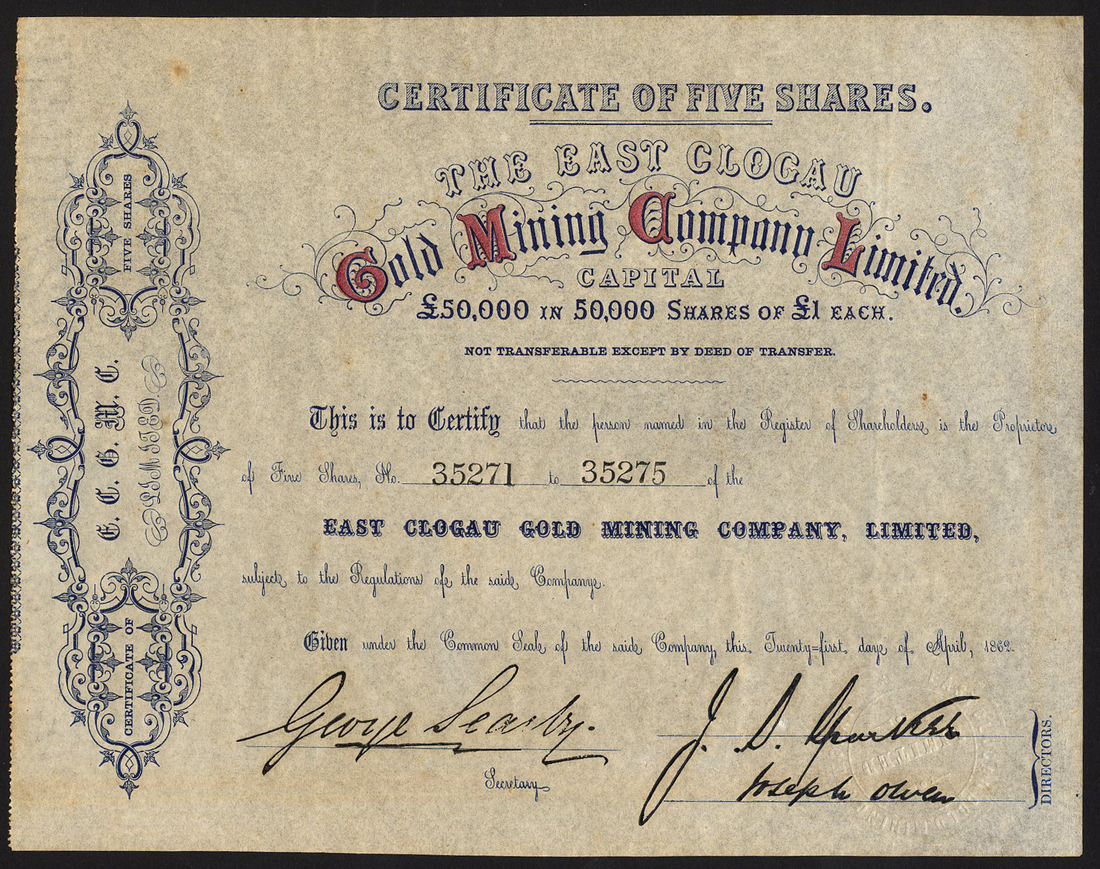 CERTIFICATE OF FIVE SHARES.
THE EAST CLOGAU
Gold Mining Company Limited.
CAPITAL
£50,000 IN 50,000 SHARES OF £1 EACH.
NOT TRANSFERABLE EXCEPT BY DEED OF TRANSFER.
This is to Certify that the person named in the Register of Shareholders is the Proprietor
of Five Shares, No. 35271 to 35275 of the
EAST CLOGAU GOLD MINING COMPANY, LIMITED,
subject to the Regulations of the said Company.
Given under the Common Seal of the said Company, this Twenty=first day of April, 1862.
George
Secretary
J. S.
Joseph Owen
DIRECTORS.
CERTIFICATE OF
E. C. G. M. C.
LIMITED
FIVE SHARES